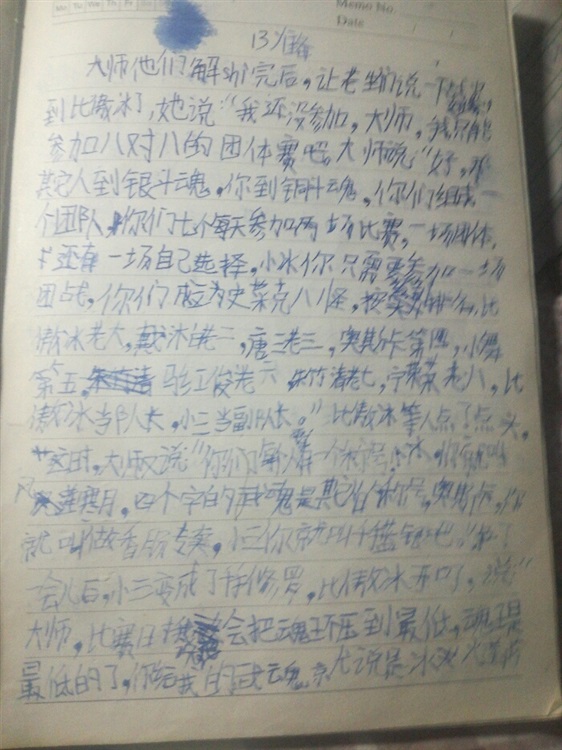 Mo Tu We Th Fr
Memo No.
Date
13
大师他们解
完后,让老生们说一下
到比傲冰了,她说“我还没参加,大师,我只能
参加八对八的团体赛吧。大师说“好,
其它人到银斗魂,你到铜斗魂,你们组成一
个团队,你们七个每天参加两场比赛,一场团体,
还有一场自己选择,小冰你只需要参加一场
团战,你们应为史莱克八怪,按实力排名,比
傲冰老大,戴沐白老二,唐三老三,奥斯卡第四,小舞
第五,马红俊老六 朱竹清老七,宁荣荣老八,比
傲冰当队长,小三当副队长。”比傲冰等人点了点头,
这时,大师又说“你们每人一个称号,小冰,你就叫
寒月,四个字的武魂是其它的称号,奥斯卡,你
就叫做香肠专卖,小三你就叫千手
会儿后,小三变成了千手修罗,比傲冰开口了,说“
大师,比赛日会把魂环压到最低,魂环是
最低的了,你说我的武魂